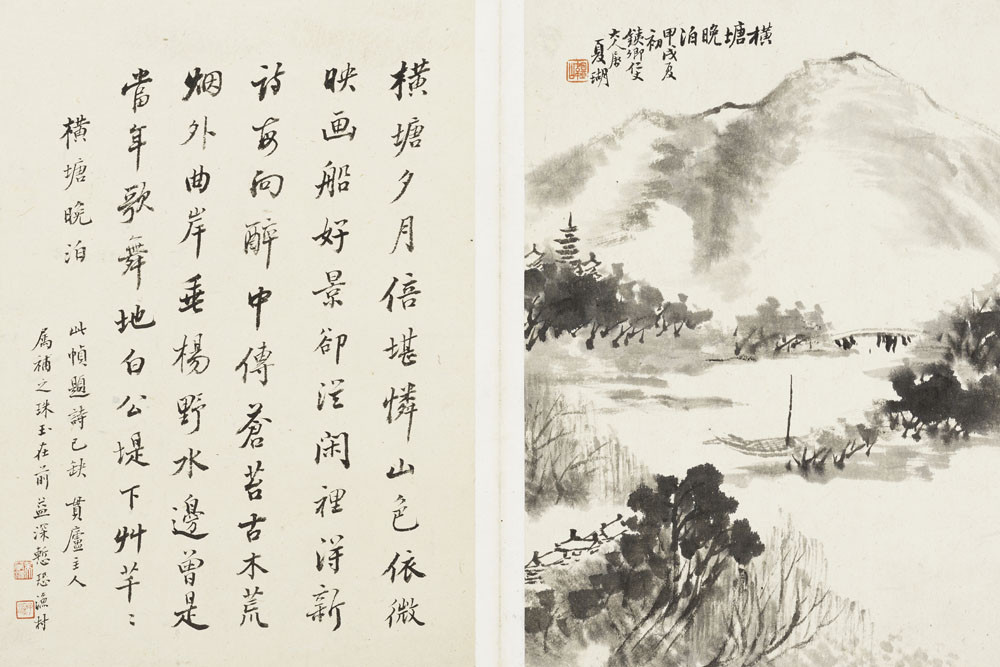 橫塘晚泊
甲戌夏
初
鐵卿仁丈
大人屬
夏瑚
橫塘夕月倍堪憐山色依微
映画船好景卻從閑裡得新
詩每向醉中傳蒼苔古木荒
烟外曲岸垂楊野水邊曾是
當年歌舞地白公堤下艸芊〻
橫塘晚泊
此幀題詩已缺 貫廬主人
属補之珠玉在前益深慙恐漁村